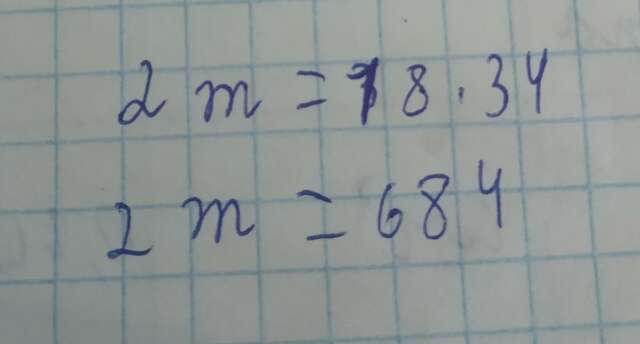 2 m = 18 . 34
2 m = 684